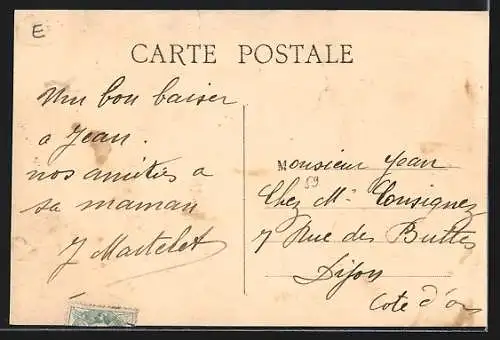 E
CARTE POSTALE
Un bon baiser
a Jean.
nos amitiés a
sa maman
J Martelet
Monsieur Jean
59
Chez Mr Consignez
7 Rue des Buttes
Dijon
Cote d'or